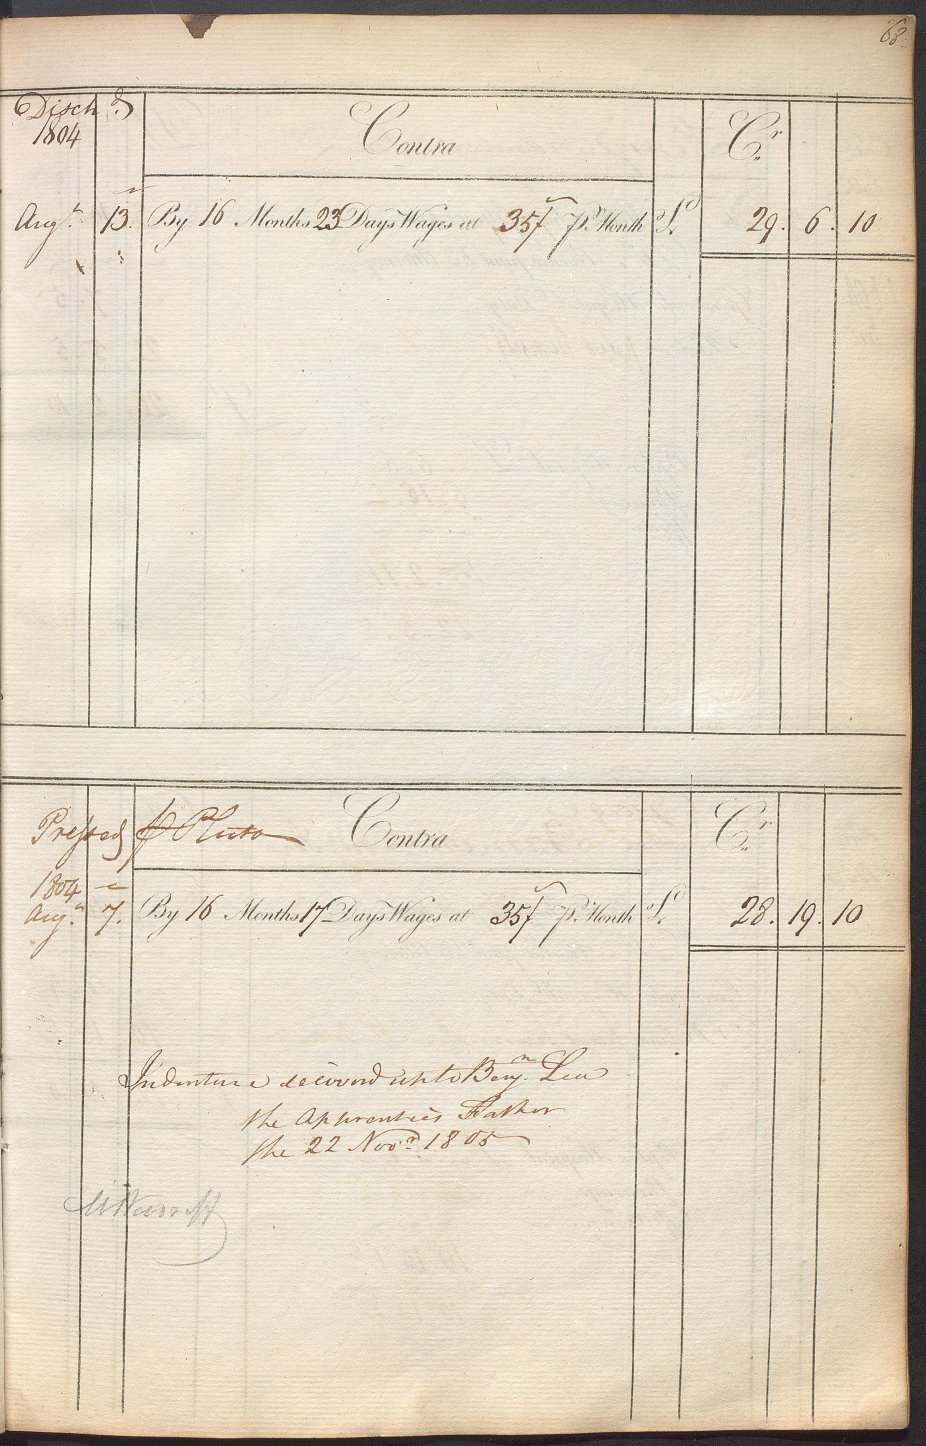 68.
Disch.d
1804 Contra Cr
Augt. 13. By 16 Months 23 Days Wages at 35/ pr. Month £ 29. 6. 10
Pressed p Pluto Contra Cr
1804
Augt. 7. By 16 Months 17 Days Wages at 35/ pr. Month £ 28. 19. 10
Indenture deliverd up to Benjn. Lea
the apprentice's Father
the 22 Novr. 1805